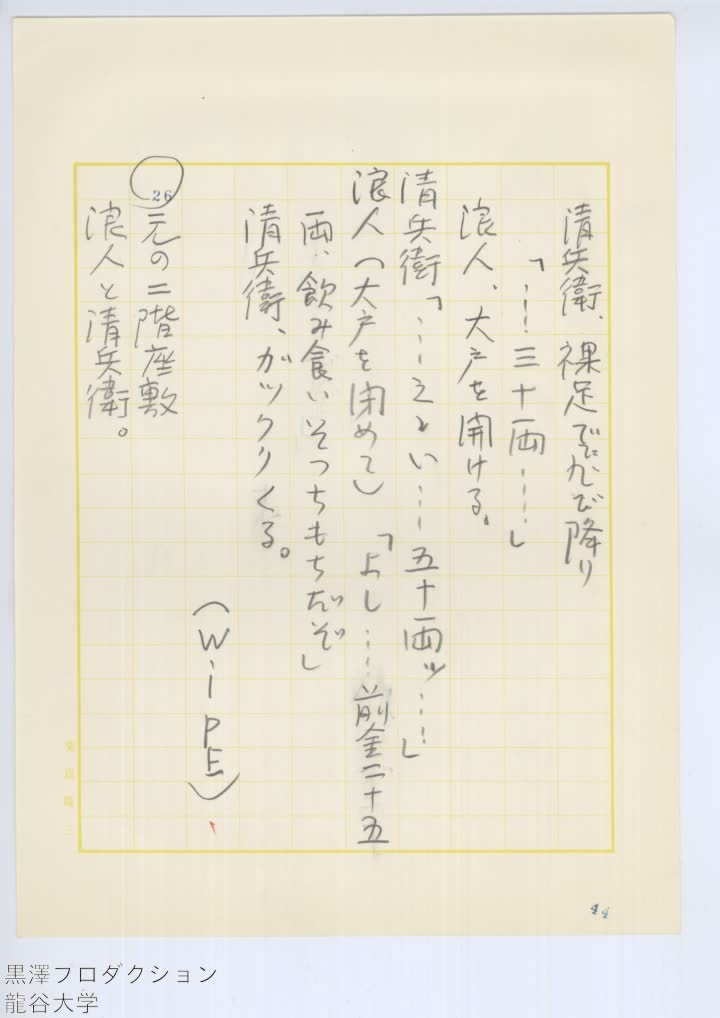 清兵衛、裸足でとび降り
「……三十両……」
浪人、大戸を開ける。
清兵衛「……えゝい……五十両ッ……」
浪人(大戸を閉めて)「よし……前金二十五
両、飲み食いそっちもちだぞ」
清兵衛、ガックリくる。
(WIPE)
26
元の二階座敷
浪人と清兵衛。
44
黒澤プロダクション
龍谷大学